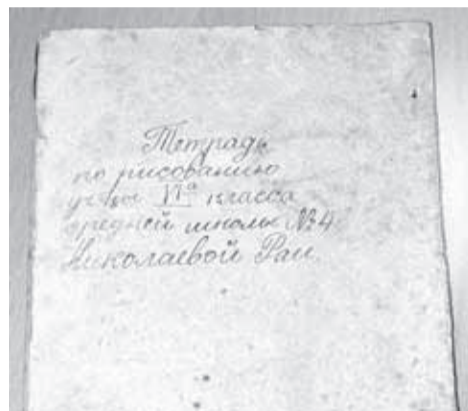 Тетрадь
по рисованию
уч-цы VIа класса
средней школы №4
Николаевой Раи.